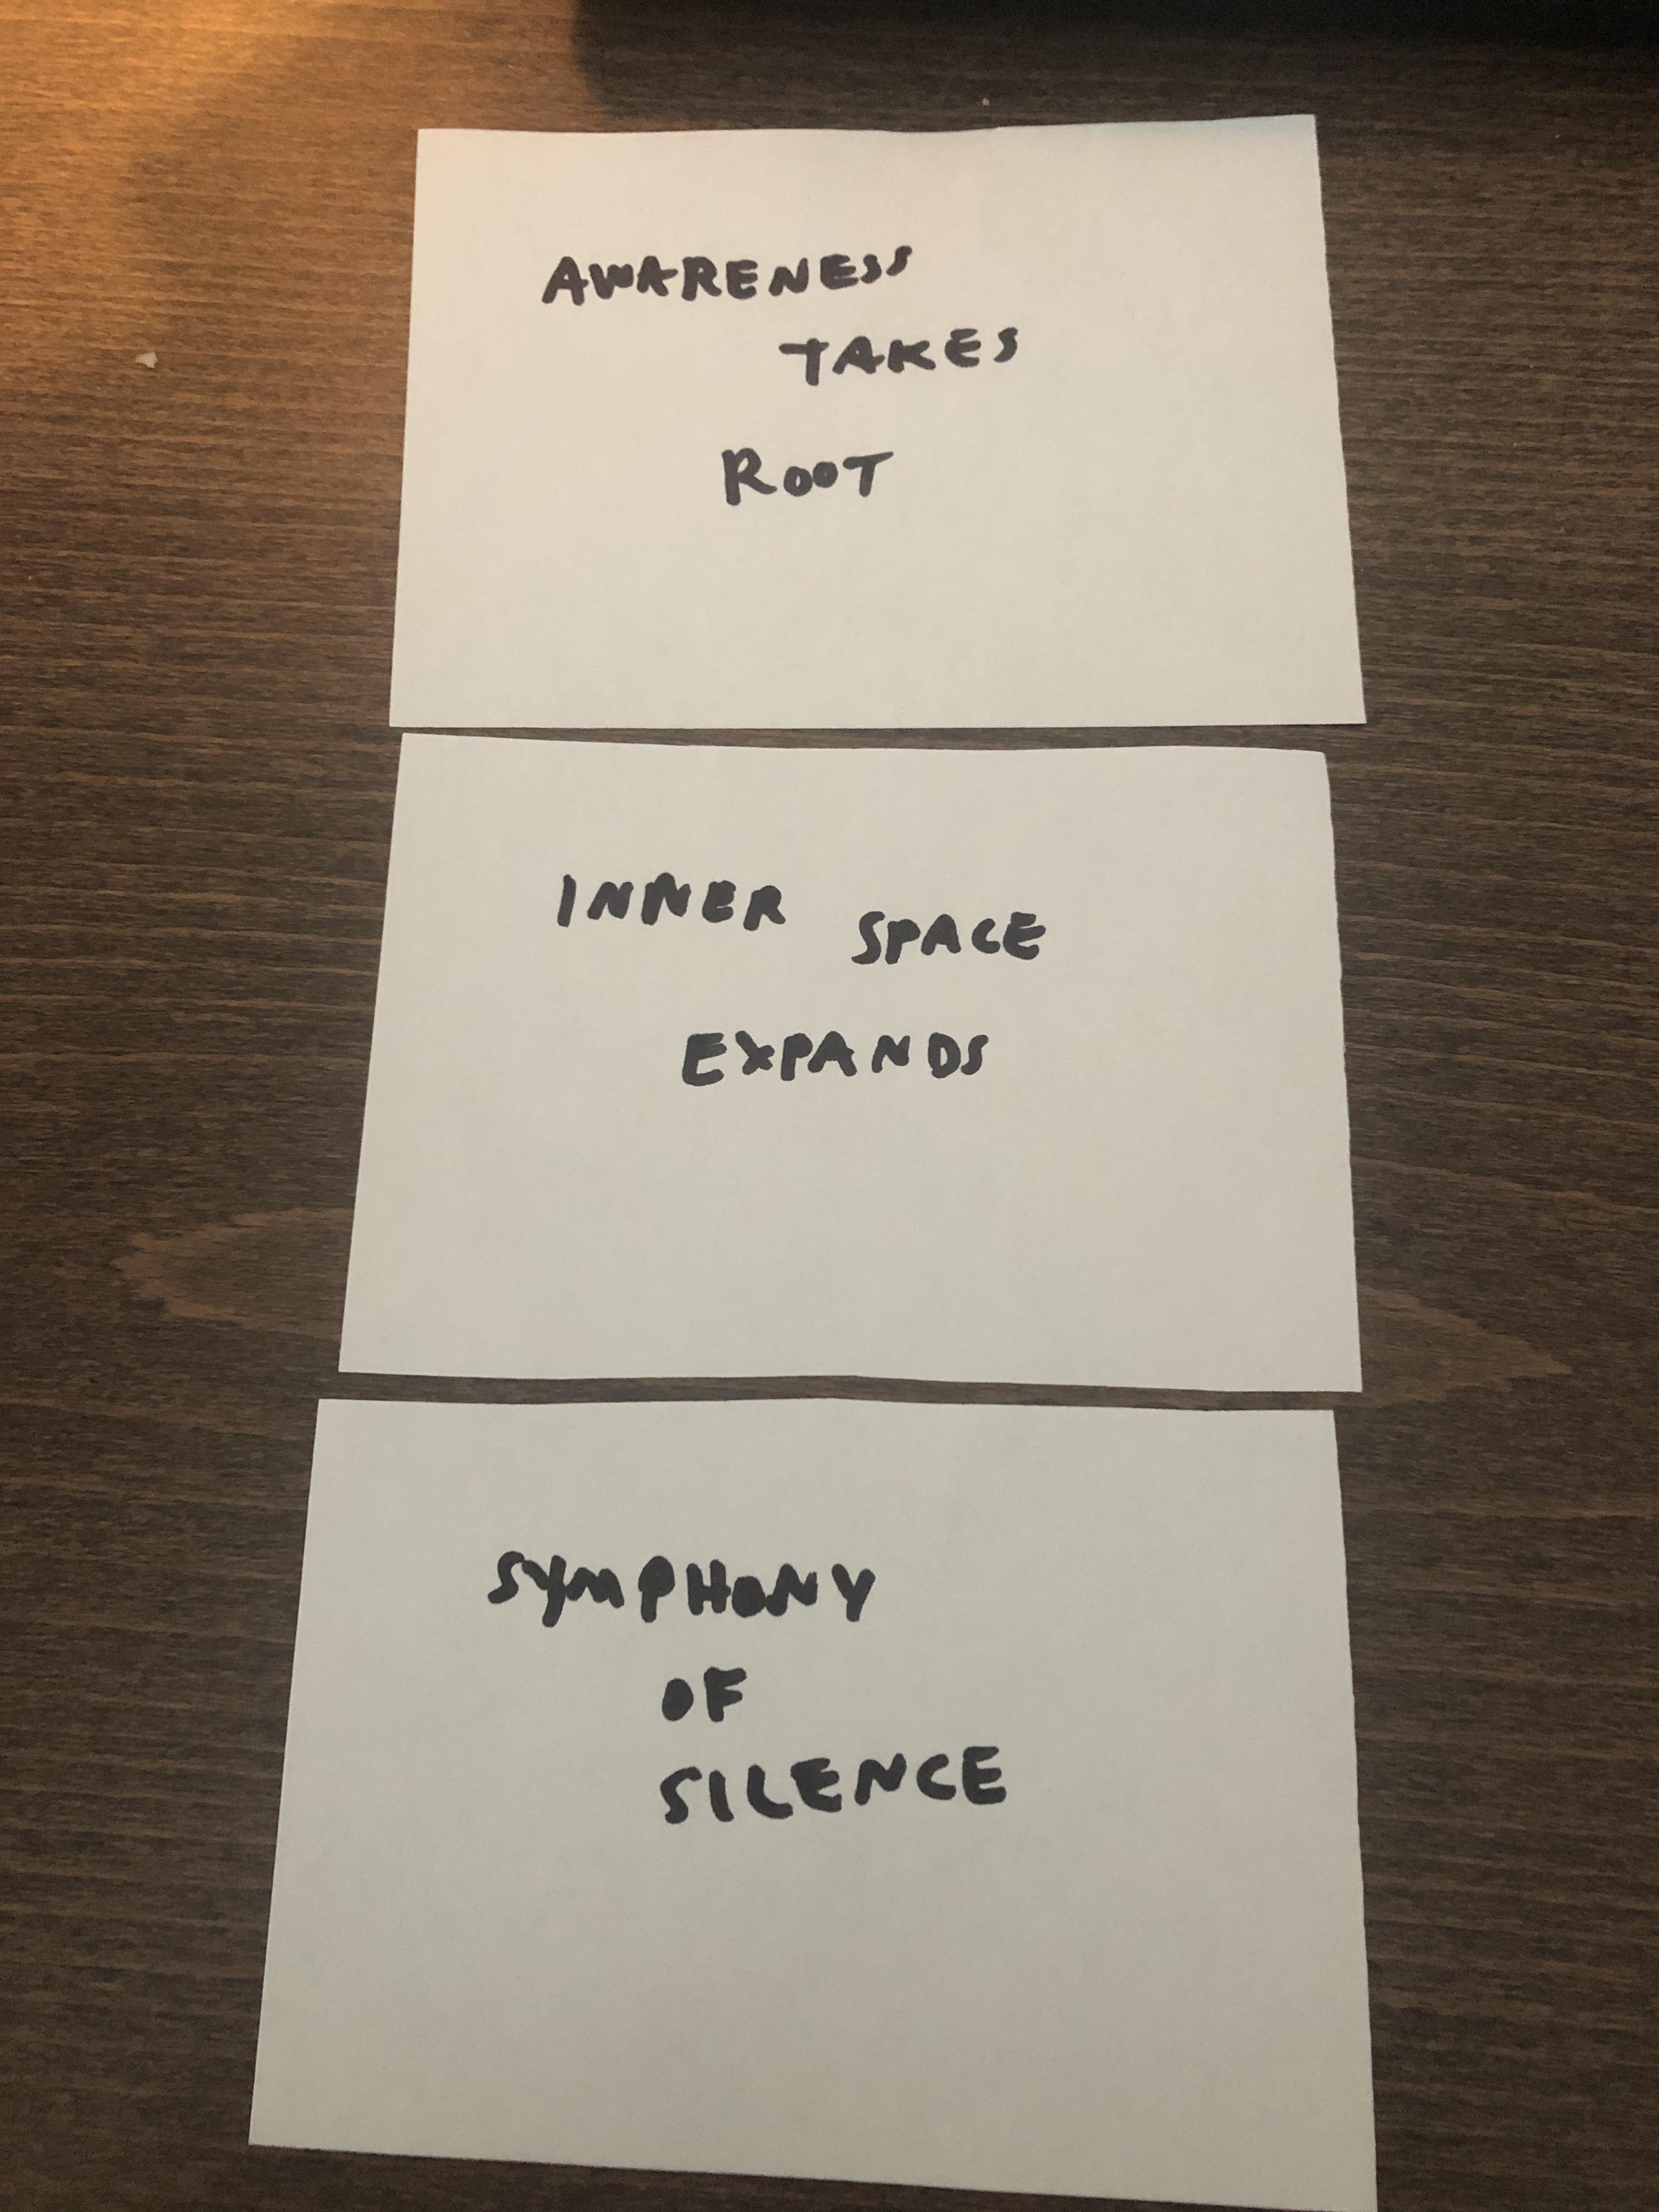 AWARENESS
TAKES
ROOT
INNER SPACE
EXPANDS
SYMPHONY
OF
SILENCE